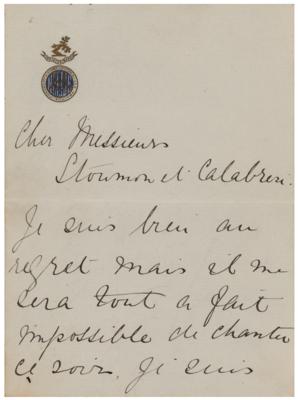 Cher Messieurs
Stoumon et Calabresi.
Je suis bien au
regret mais il me
sera tout a fait
impossible de chanter
ce soir. Je suis